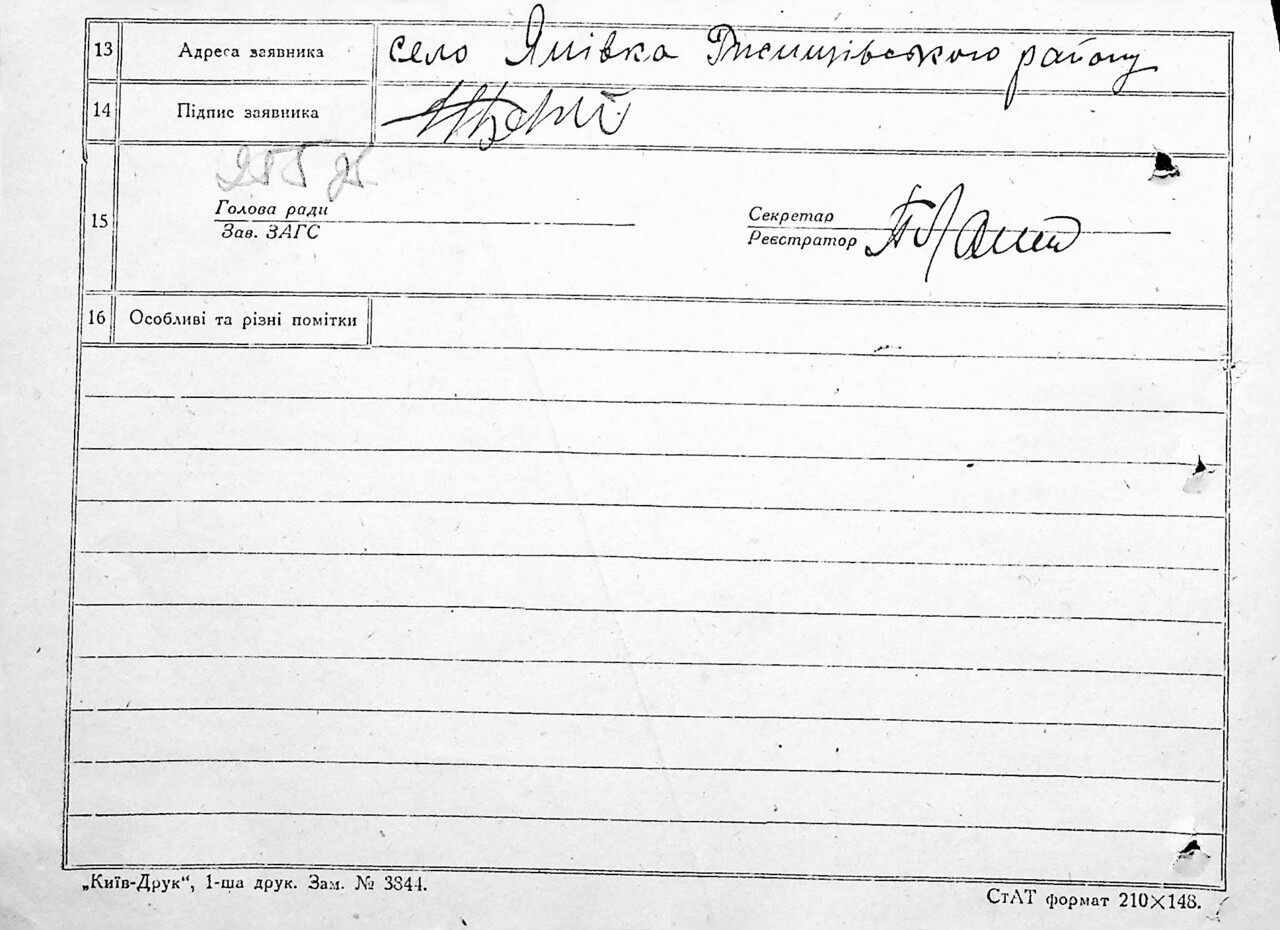 13 Адреса заявника село Яшівка району
14 Підпис заявника
Голова ради
Зав. ЗАГС
Секретар
Реєстратор
15
16 Особливі та різні помітки
„Київ-Друк“, 1-ша друк. Зам. № 3844.
СтАТ формат 210×148.